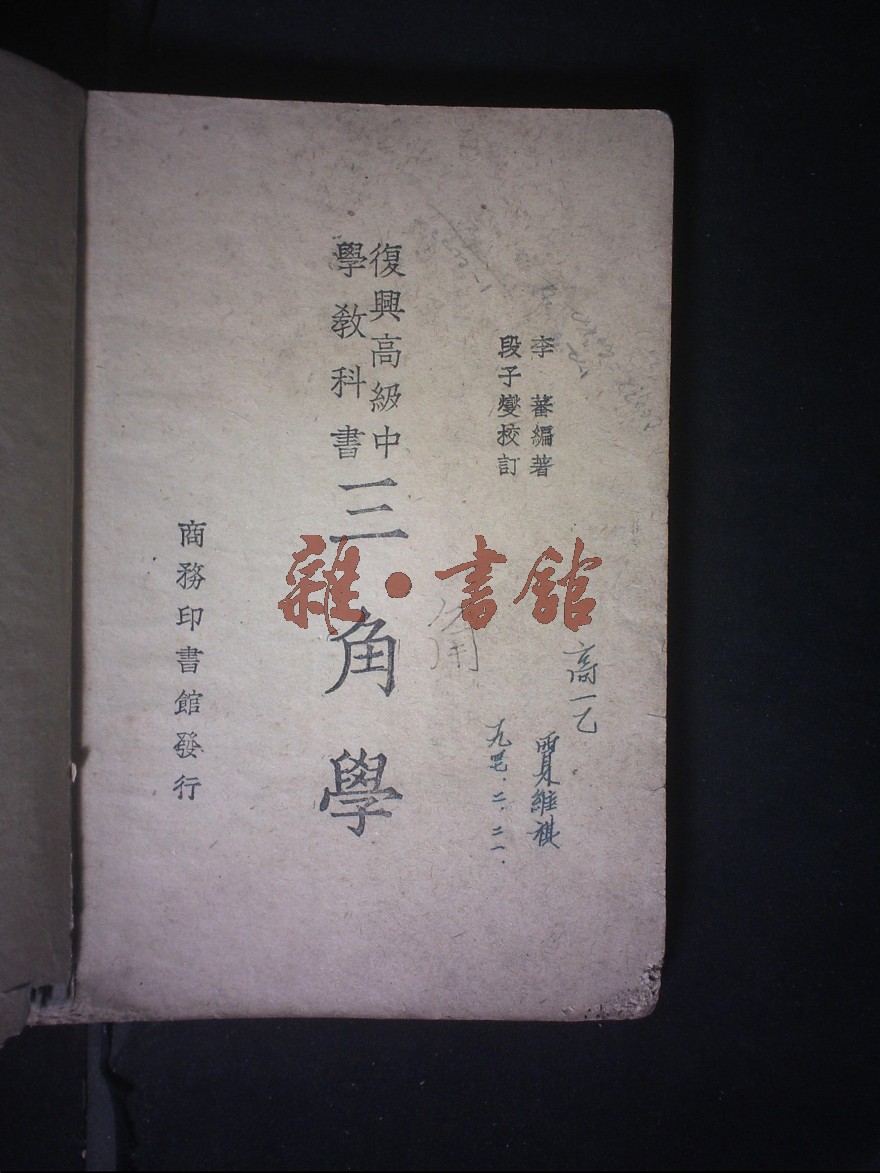 李蕃編著
段子燮校訂
復興高級中
學教科書
三角學
商務印書館發行
雜·書館
高一乙
賈維祺